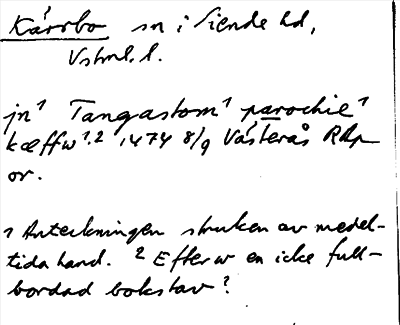 Kärrbo sn i Siende hd,
Vstml. l.
jn¹ Tangastom¹ parochie¹
kæffw¹·² 1474 8/9 Västerås RAp
or.
¹ Anteckningen struken av medel-
tida hand. ² Efter w en icke full-
bordad bokstav?